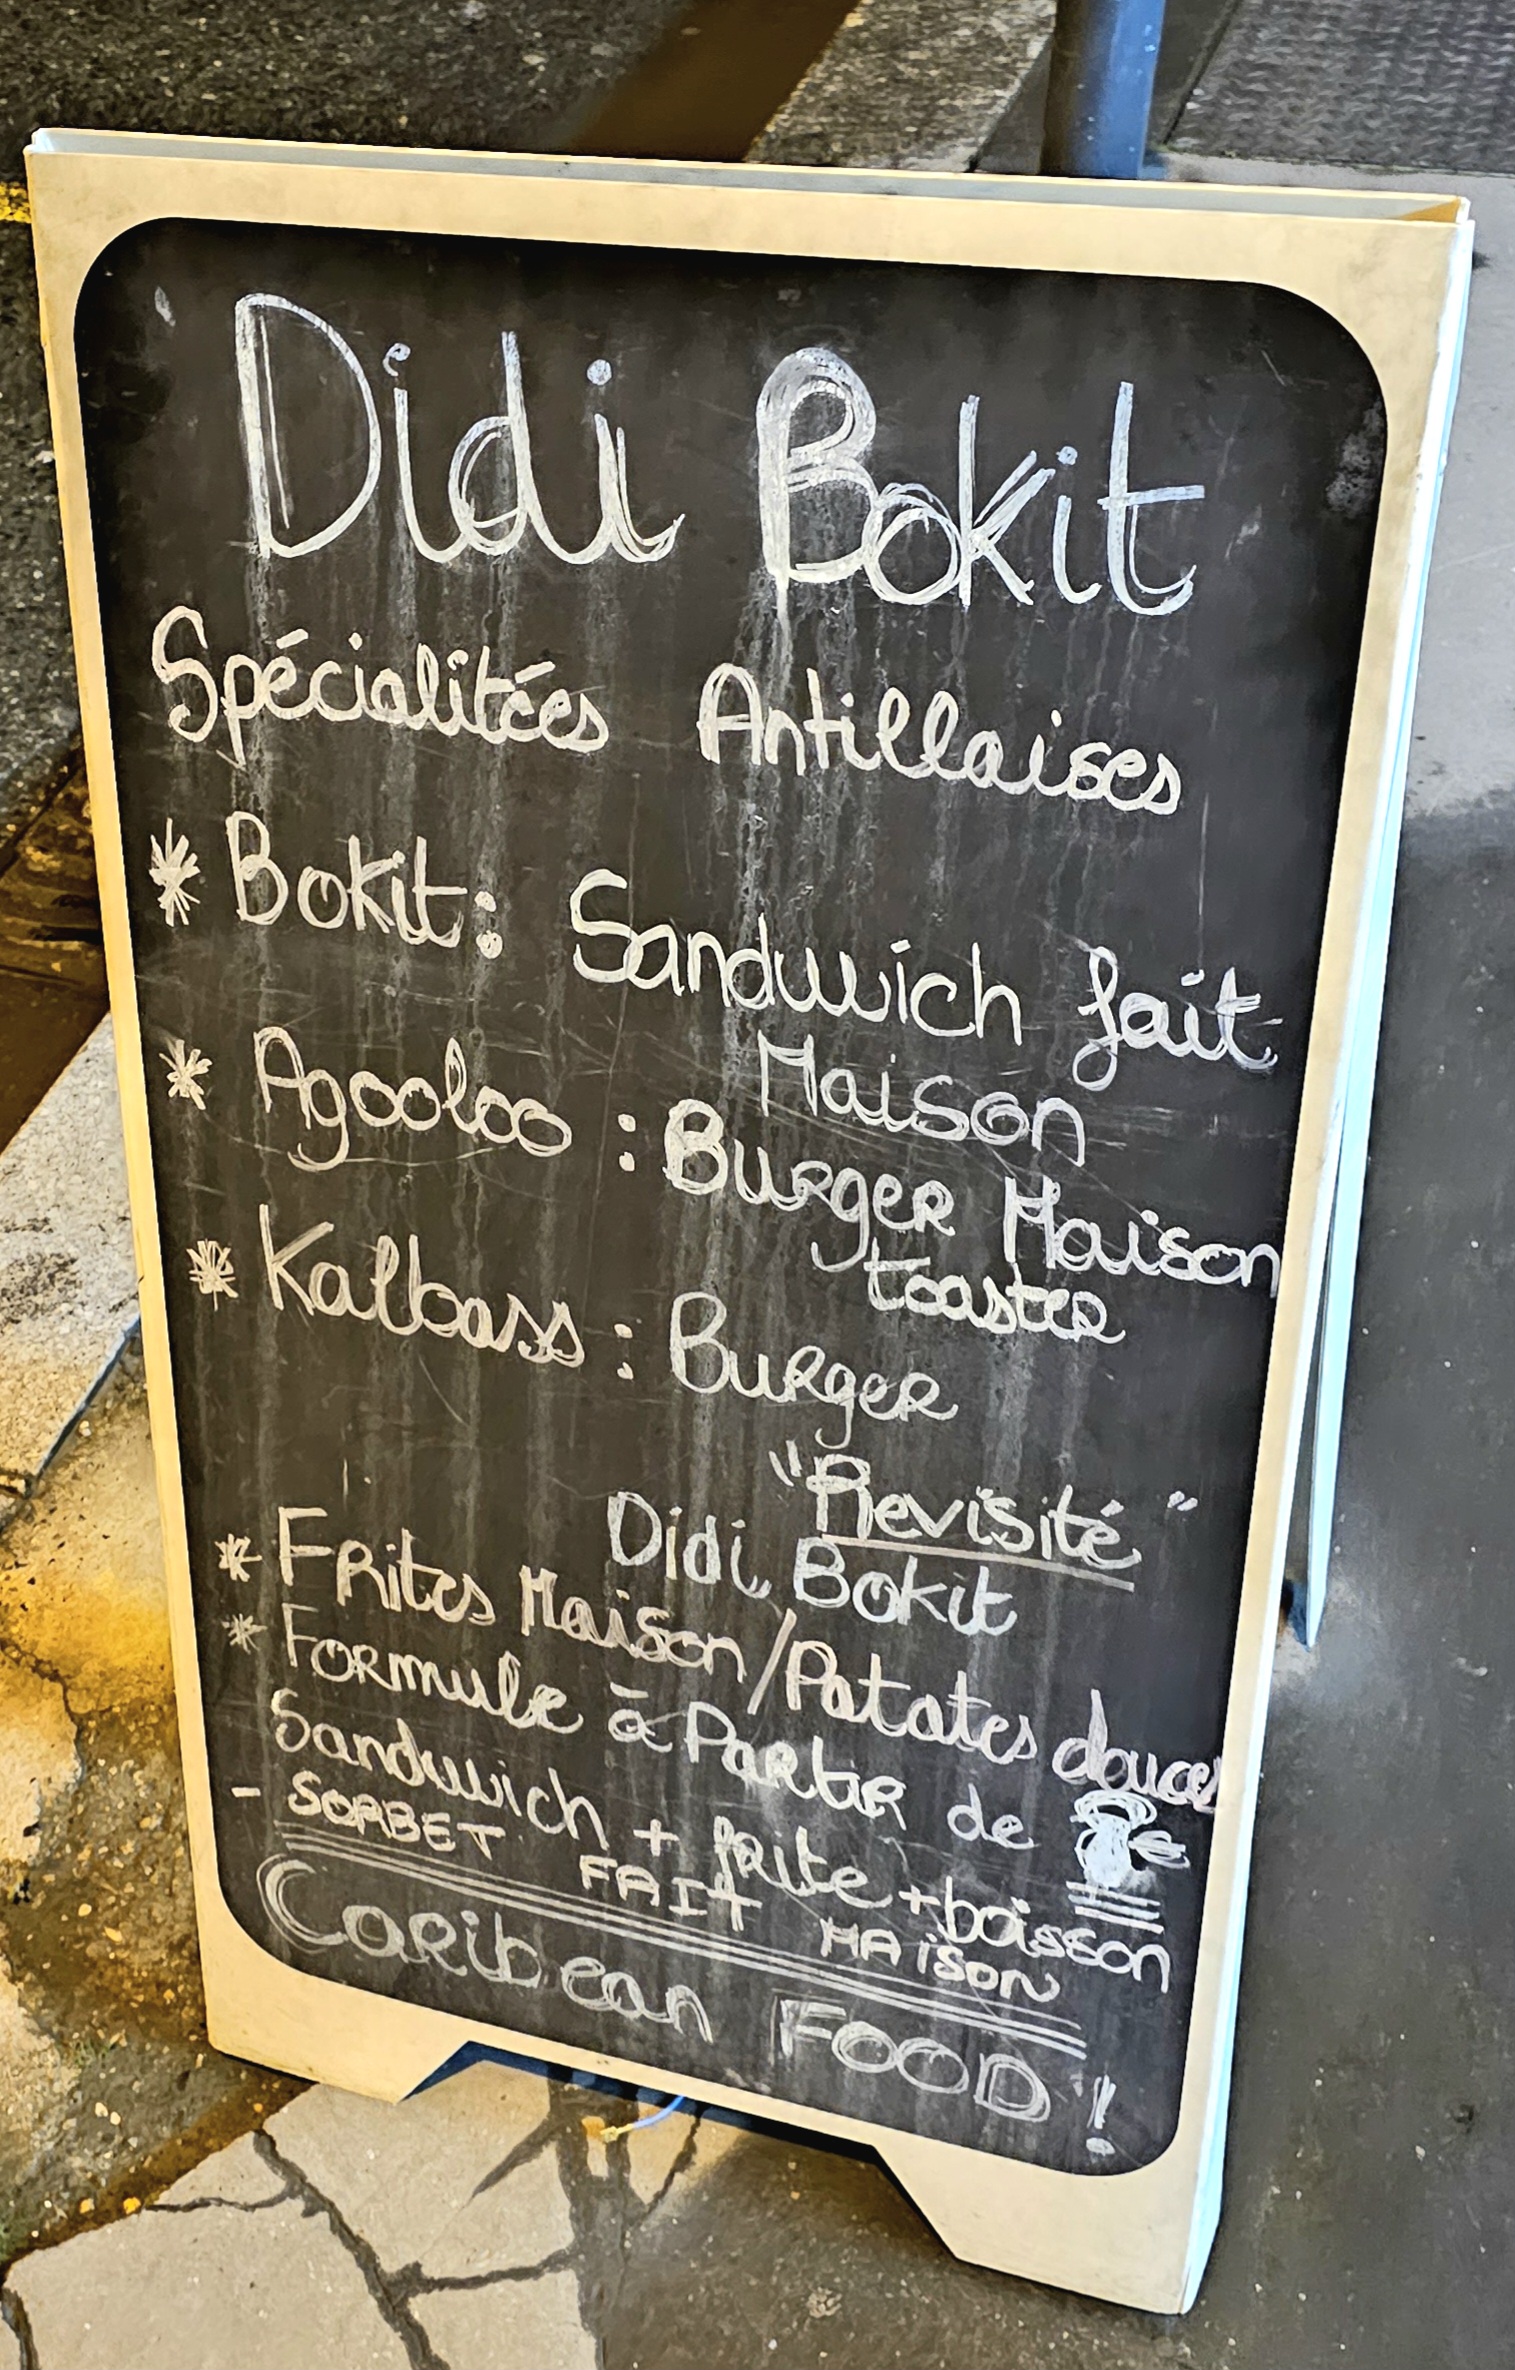 Didi Bokit
Spécialitées Antillaises
* Bokit : Sandwich fait
Maison
* Agooloo : Burger Maison
toaster
* Kalbass : Burger
"Revisité"
Didi Bokit
* Frites Maison/Patates douces
* Formule à Partir de €
Sandwich + frite + boisson
- SORBET FAIT MAISON
Caribean FOOD !